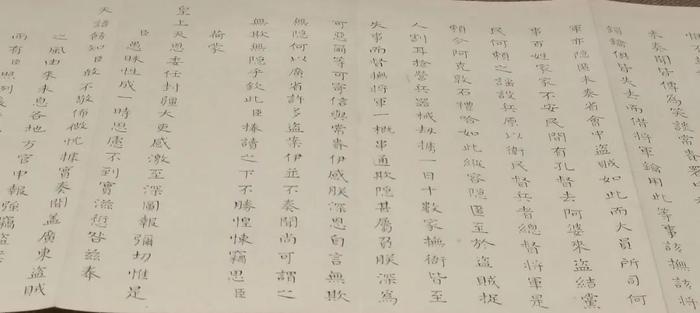 未奏聞皆傳為笑談常賚署
鎖鑰俱皆失去而借將軍鑰用此等事該撫該將
軍亦隱匿未奏省會中盜賊如此而大員所司何
事百姓家家不安民間有孔督去阿婆來盜結黨
民何賴之謠設兵原以衛民督兵者總督將軍是
賴今阿克敦石禮哈如此縱容隱匿至於盜賊捉
人割耳搶營兵器械劫擄一日十數家撫衙皆至
失事而督撫將軍一概串通欺隱甚屬負朕深為
可惡爾等可寄信與常賚伊感朕深恩自言無欺
無隱何以廣省許多盜案伊並不奏聞尚可謂之
無欺無隱乎欽此臣捧讀之下不勝惶悚竊思臣
荷蒙
皇上天恩委任封疆大吏感激至深圖報彌切惟是
臣愚昧性成一時思慮不到實滋愆咎茲奉
天語飭知臣敢不敬佈微忱據實奏聞蓋廣東盜賊
之風由來未息各地方官申報強竊盜案
而有臣照列